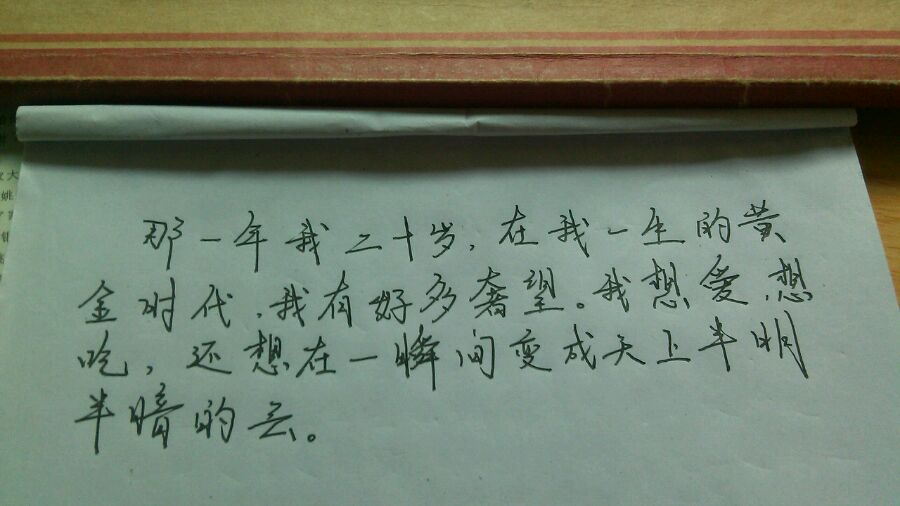 那一年我二十岁，在我一生的黄
金时代，我有好多奢望。我想爱，想
吃，还想在一瞬间变成天上半明
半暗的云。